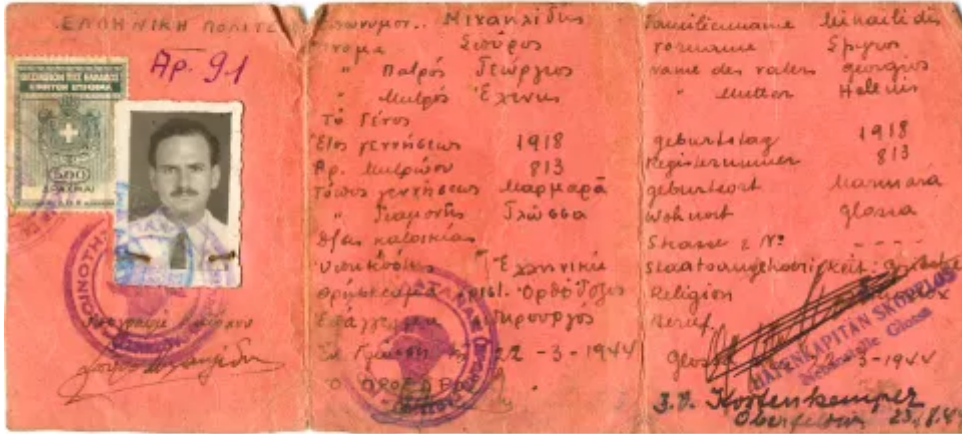 ΕΛΛΗΝΙΚΗ ΠΟΛΙΤΕ
Αρ. 91
500
ΔΡΑΧΜΑΙ
Μιχαηλίδης
Σπύρος
" Πατρός Γεώργιος
" Μητρός Ελένης
Τὸ Γένος
Ἔτος γεννήσεως 1918
Αρ. Μητρώου 813
Τόπος γεννήσεως Μαρμαρᾶ
" Διαμονῆς Γλώσσα
Ὁδὸς κατοικίας
Ὑπηκοότης Ἑλληνική
Θρήσκευμα
Ἐπάγγελμα
22-3-1944
Ο ΠΡΟΕΔΡΟΣ
Familienname Mihailidis
Vorname Spyros
Name des Vaters Georgios
" Mutter Helenis
Geburtstag 1918
Registernummer 813
Geburtsort Marmara
Wohnort Glossa
Strasse & No ----
Staatsangehoerigkeit
Religion
Beruf
-3-1944
HAFENKAPITÄN SKOPELOS
Nebenstelle Glossa
Kortenkemper